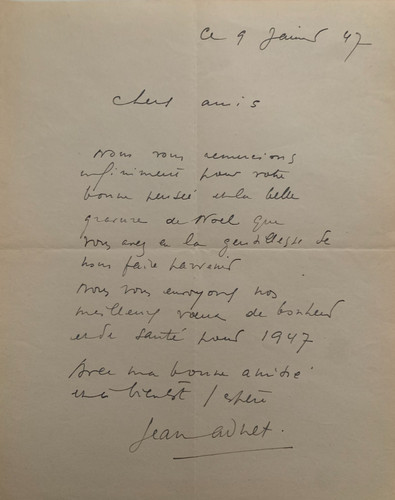 ce 9 Janvier 47
Chers amis
Nous vous remercions
infiniment pour votre
bonne pensée et la belle
gravure de Noel que
vous avez eu la gentillesse de
nous faire parvenir
Nous vous envoyons nos
meilleurs vœux de bonheur
et de santé pour 1947
Avec ma bonne amitié
et à bientôt j'espère
Jean Adnet.